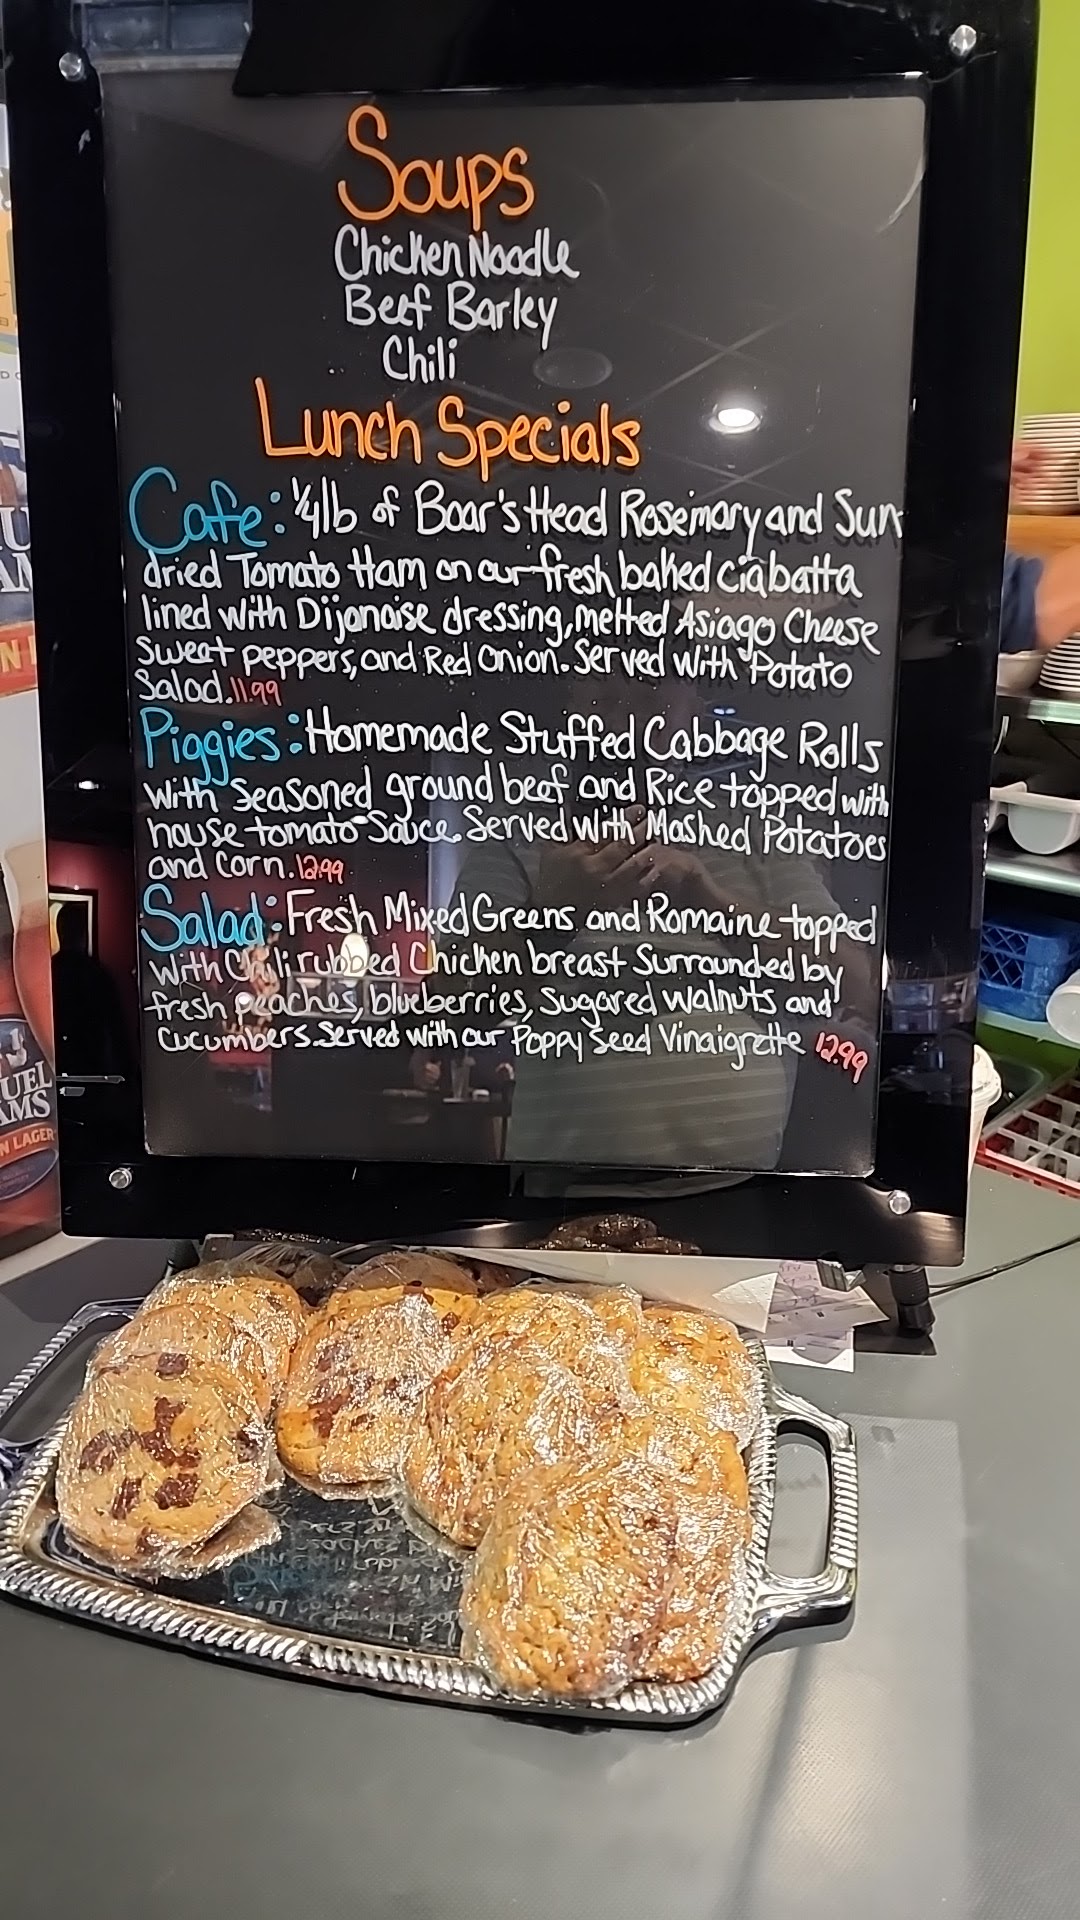 Soups
Chicken Noodle
Beef Barley
Chili
Lunch Specials
Cafe: 1/4 lb of Boar's Head Rosemary and Sun
dried Tomato Ham on our fresh baked ciabatta
lined with Dijonaise dressing, melted Asiago Cheese
Sweet peppers, and Red Onion. Served With Potato
Salad. 11.99
Piggies: Homemade Stuffed Cabbage Rolls
with seasoned ground beef and Rice topped with
house tomato Sauce. Served With Mashed Potatoes
and Corn. 12.99
Salad: Fresh Mixed Greens and Romaine topped
with Chili rubbed Chicken breast Surrounded by
fresh peaches, blueberries, Sugared Walnuts and
Cucumbers. Served with our Poppy Seed Vinaigrette 12.99
UEL
AMS
N LAGER